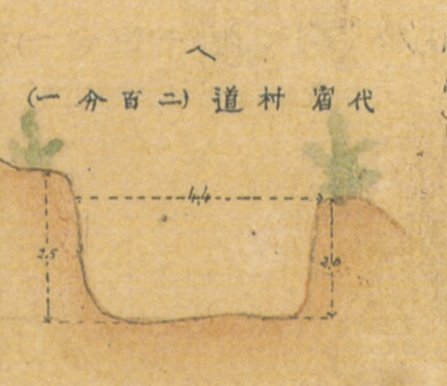 ヘ
代宿村道(二百分一)
4.4
2.5
2.0